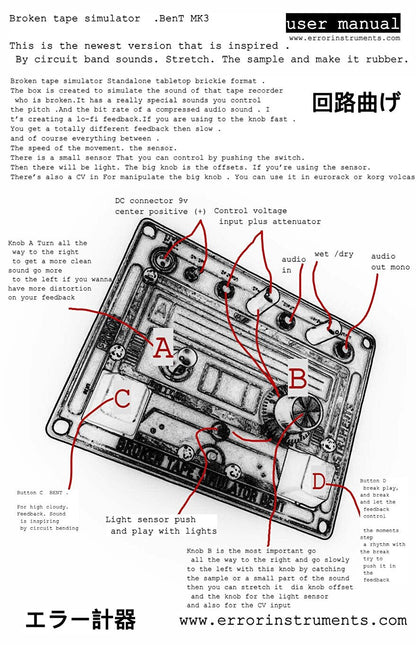 Broken tape simulator  .BenT MK3
user manual
www.errorinstruments.com
This is the newest version that is inspired .
By circuit band sounds. Stretch. The sample and make it rubber.
Broken tape simulator Standalone tabletop brickie format .
The box is created to simulate the sound of that tape recorder
who is broken.It has a really special sounds you control
the pitch .And the bit rate of a compressed audio sound . I
t’s creating a lo-fi feedback.If you are using to the knob fast .
You get a totally different feedback then slow .
and of course everything between .
The speed of the movement. the sensor.
There is a small sensor That you can control by pushing the switch.
Then there will be light. The big knob is the offsets. If you’re using the sensor.
There’s also a CV in For manipulate the big knob . You can use it in eurorack or korg volcas
回路曲げ
DC connector 9v
center positive (+)
Control voltage
input plus attenuator
audio
in
wet /dry
audio
out mono
Knob A Turn all the
way to the right
to get a more clean
sound go more
to the left if you wanna
have more distortion
on your feedback
A
B
C
D
BROKEN TAPE SIMULATOR BENT
Button C  BENT .
For high cloudy.
Feedback. Sound
is inspiring
by circuit bending
Light sensor push
and play with lights
Button D
break play.
and break
and let the
feedback
control
the moments
step
a rhythm with
the break
try to
push it in
the
feedback
Knob B is the most important go
all the way to the right and go slowly
to the left with this knob by catching
the sample or a small part of the sound
then you can stretch it  dis knob offset
and the knob for the light sensor
and also for the CV input
エラー計器
www.errorinstruments.com